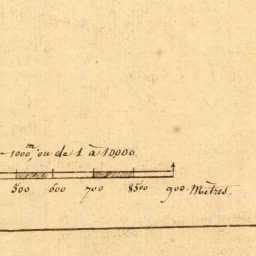 1000m, ou de 1 à 10000.
500 600 700 800 900 Mètres.